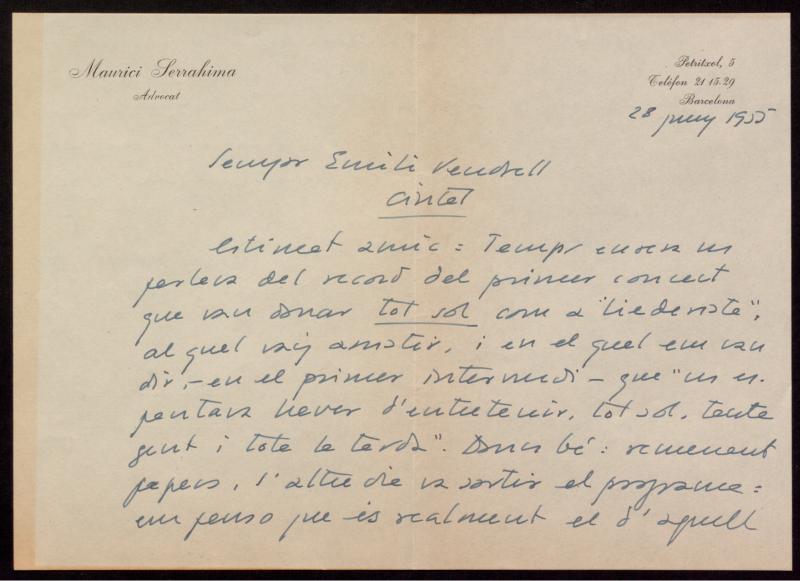 Maurici Serrahima
Advocat
Petritxol, 5
Telèfon 21 15.29
Barcelona
28 juny 1955
Senyor Emili Vendrell
Ciutat
Estimat amic: Temps enrera us
parlava del record del primer concert
que vau donar tot sol com a "liederista",
al qual vaig assistir, i en el qual em vau
dir, - en el primer intermedi - que "us es-
pantava haver d'entretenir, tot sol, tanta
gent i tota la tarda". Doncs bé: remenant
papers, l'altre dia va sortir el programa:
em penso que és realment el d'aquell